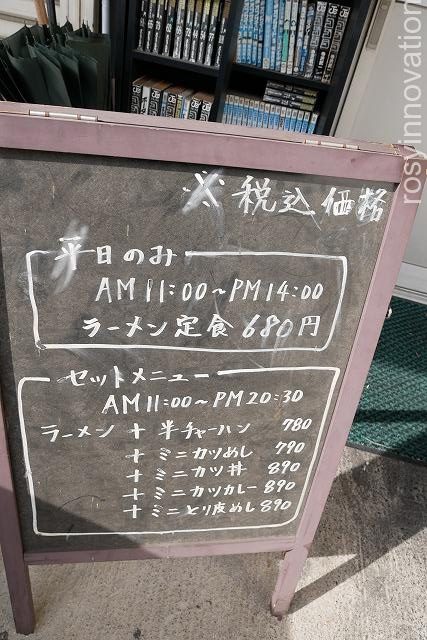 ※税込価格
平日のみ
AM11:00~PM14:00
ラーメン定食 680円
セットメニュー
AM11:00~PM20:30
ラーメン + 半チャーハン 780
+ ミニカツめし 790
+ ミニカツ丼 890
+ ミニカツカレー 890
+ ミニとり皮めし 890
rosyinnovation